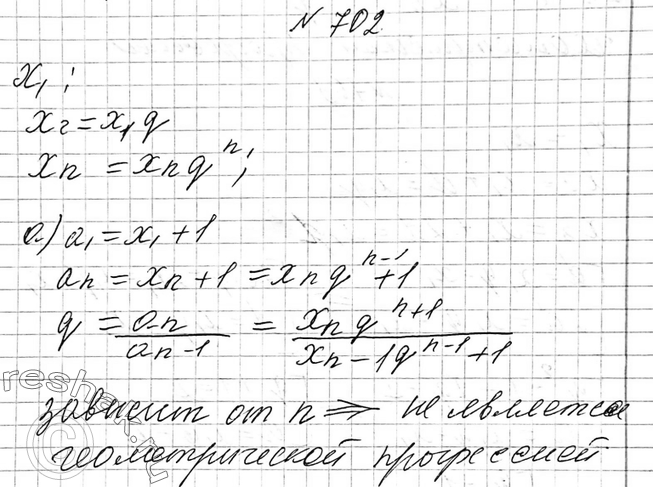 N 702
x₁ ;
x₂ = x₁ q
xₙ = xₙ qⁿ;
а) a₁ = x₁ + 1
aₙ = xₙ + 1 = xₙ qⁿ⁻¹ + 1
q = aₙ / aₙ₋₁ = xₙ qⁿ⁺¹ / xₙ - 1qⁿ⁻¹ + 1
reshak.ru
зависит от n ⇒ не является
геометрической прогрессией